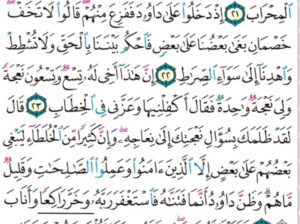 ٱلْمِحْرَابَ ٢١ إِذْ دَخَلُوا۟ عَلَىٰ دَاوُۥدَ فَفَزِعَ مِنْهُمْ ۖ قَالُوا۟ لَا تَخَفْ ۖ
خَصْمَانِ بَغَىٰ بَعْضُنَا عَلَىٰ بَعْضٍ فَٱحْكُم بَيْنَنَا بِٱلْحَقِّ وَلَا تُشْطِطْ
وَٱهْدِنَآ إِلَىٰ سَوَآءِ ٱلصِّرَٰطِ ٢٢ إِنَّ هَٰذَآ أَخِى لَهُۥ تِسْعٌ وَتِسْعُونَ نَعْجَةً
وَلِىَ نَعْجَةٌ وَٰحِدَةٌ فَقَالَ أَكْفِلْنِيهَا وَعَزَّنِى فِى ٱلْخِطَابِ ٢٣ قَالَ
لَقَدْ ظَلَمَكَ بِسُؤَالِ نَعْجَتِكَ إِلَىٰ نِعَاجِهِۦ ۖ وَإِنَّ كَثِيرًا مِّنَ ٱلْخُلَطَآءِ لَيَبْغِى
بَعْضُهُمْ عَلَىٰ بَعْضٍ إِلَّا ٱلَّذِينَ ءَامَنُوا۟ وَعَمِلُوا۟ ٱلصَّٰلِحَٰتِ وَقَلِيلٌ
مَّا هُمْ ۗ وَظَنَّ دَاوُۥدُ أَنَّمَا فَتَنَّٰهُ فَٱسْتَغْفَرَ رَبَّهُۥ وَخَرَّ رَاكِعًا وَأَنَابَ